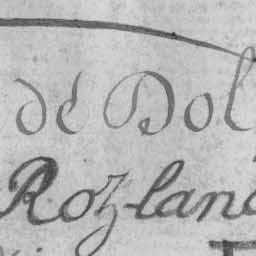 de Dol
Roz-lan